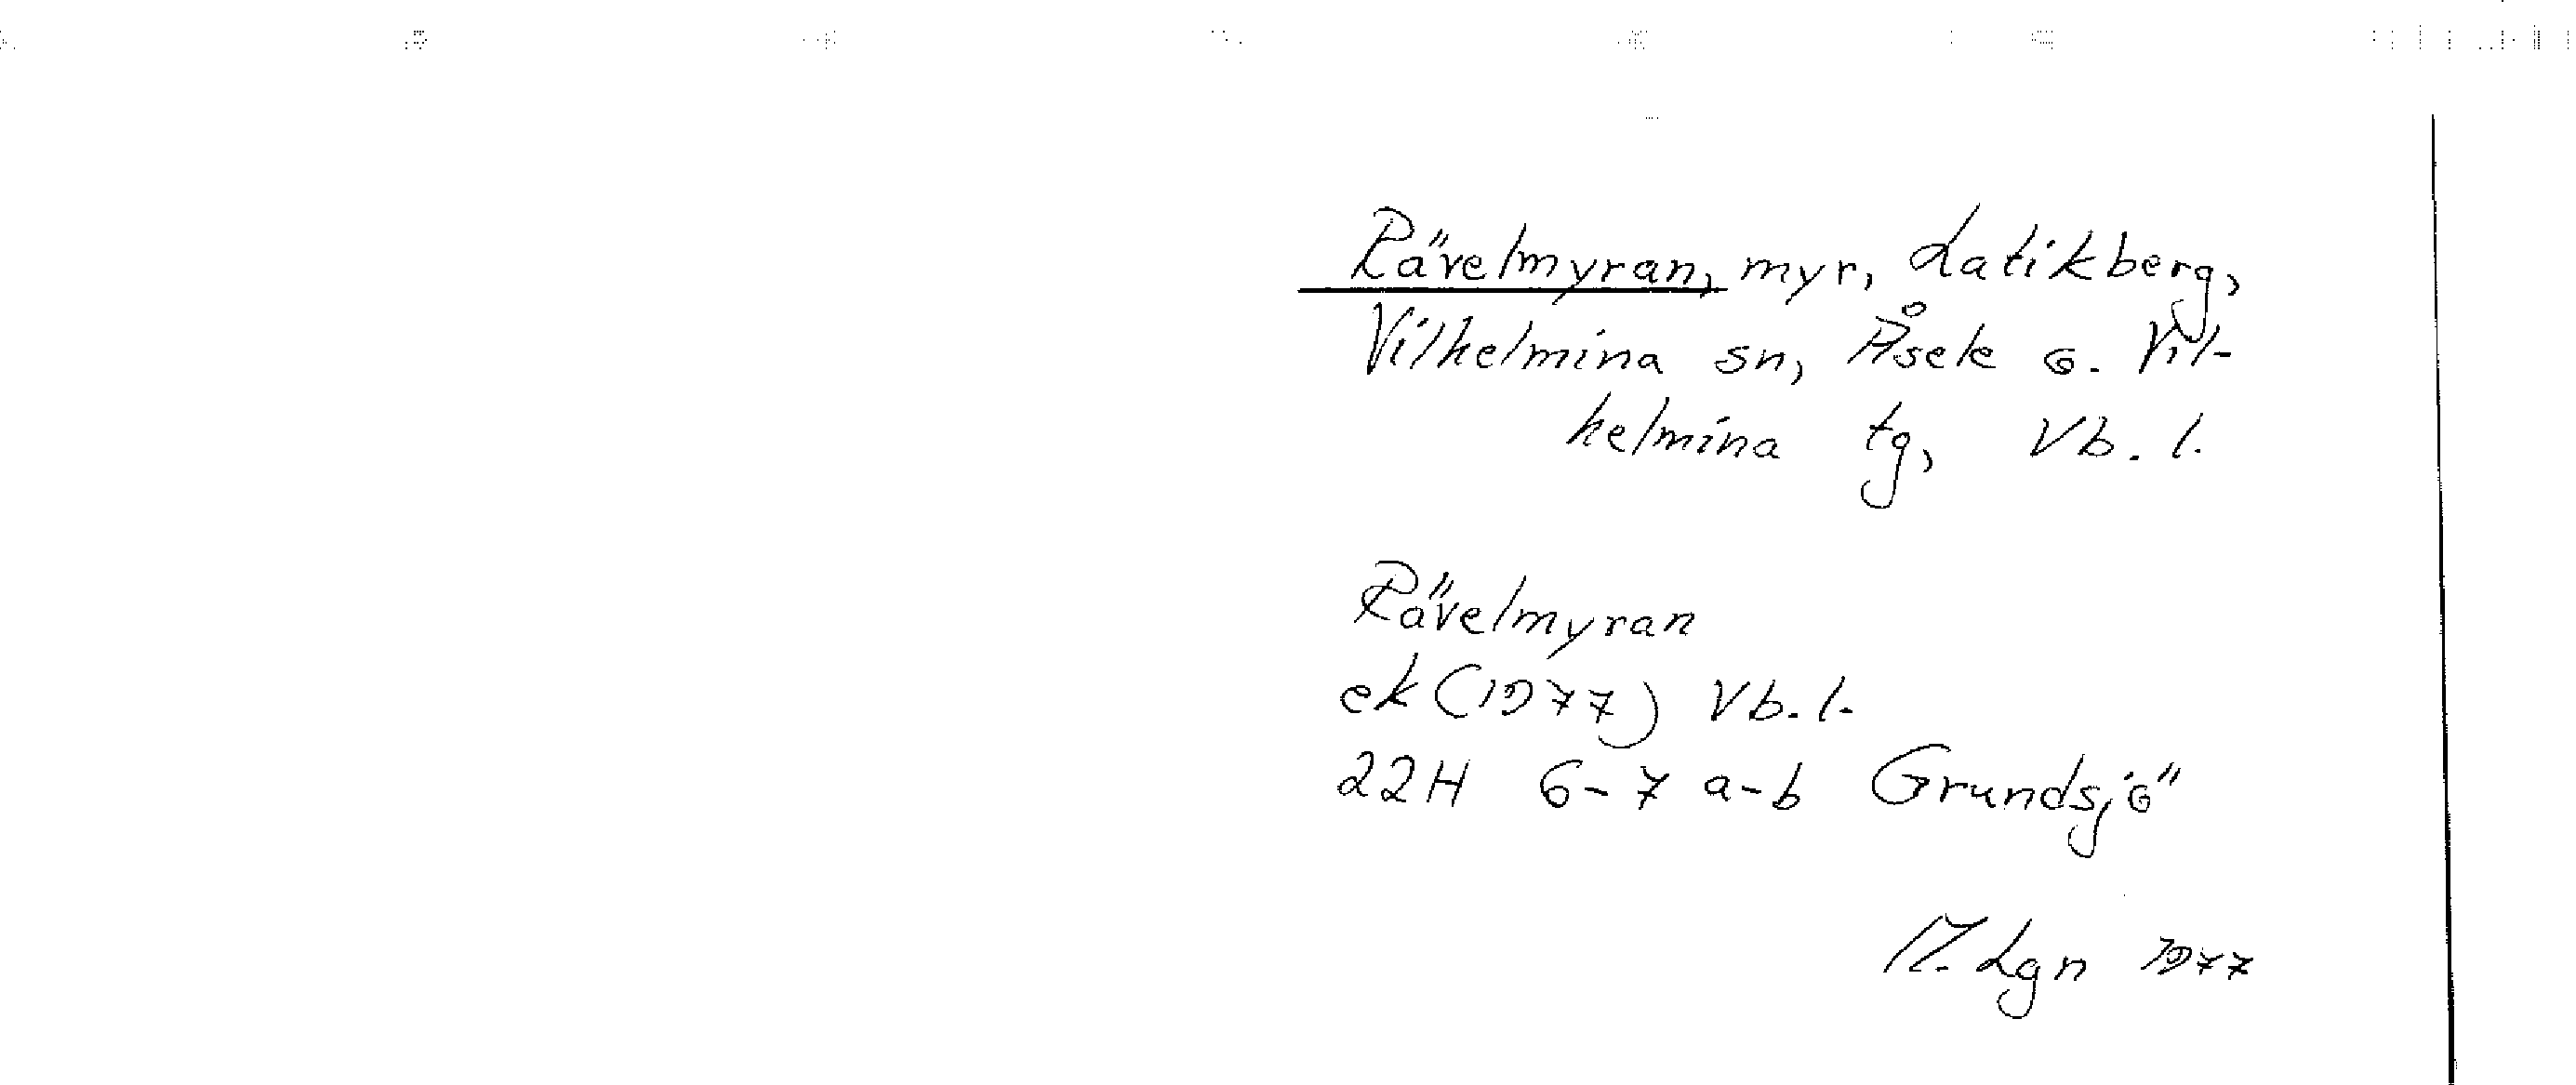 Rävelmyran, myr, Latikberg,
Vilhelmina sn, Åsele o. Vil-
helmina tg, Vb. l.
Rävelmyran
ek (1977) Vb. l.
22H 6-7 a-b Grundsjö
M. Lgn 1977